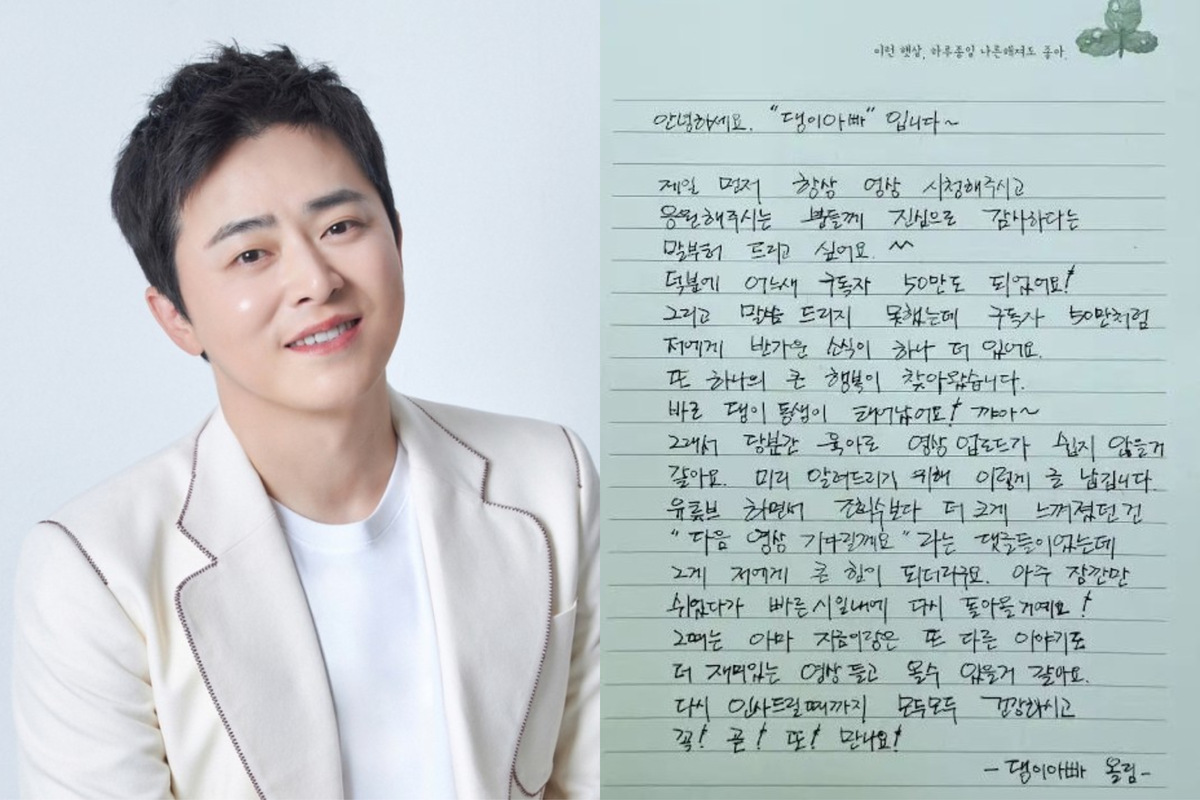 이런 햇살, 하루종일 나른해져도 좋아.
안녕하세요. "댕이아빠" 입니다~
제일 먼저 항상 영상 시청해주시고
응원해주시는 분들께 진심으로 감사하다는
말부터 드리고 싶어요. ^^
덕분에 어느새 구독자 50만도 되었어요!
그리고 말씀 드리지 못했는데 구독자 50만처럼
저에게 반가운 소식이 하나 더 있어요.
또 하나의 큰 행복이 찾아왔습니다.
바로 댕이 동생이 태어났어요! 꺄아~
그래서 당분간 육아로 영상 업로드가 쉽지 않을거
같아요. 미리 알려드리기 위해 이렇게 글 남깁니다.
유튜브 하면서 조회수보다 더 크게 느껴졌던 건
"다음 영상 기다릴께요" 라는 댓글들이었는데
그게 저에게 큰 힘이 되더라구요. 아주 잠깐만
쉬었다가 빠른 시일내에 다시 돌아올거예요!
그때는 아마 지금이랑은 또 다른 이야기로
더 재미있는 영상 들고 올수 있을거 같아요.
다시 인사드릴때까지 모두모두 건강하시고
꼭! 곧! 또! 만나요!
- 댕이아빠 올림 -